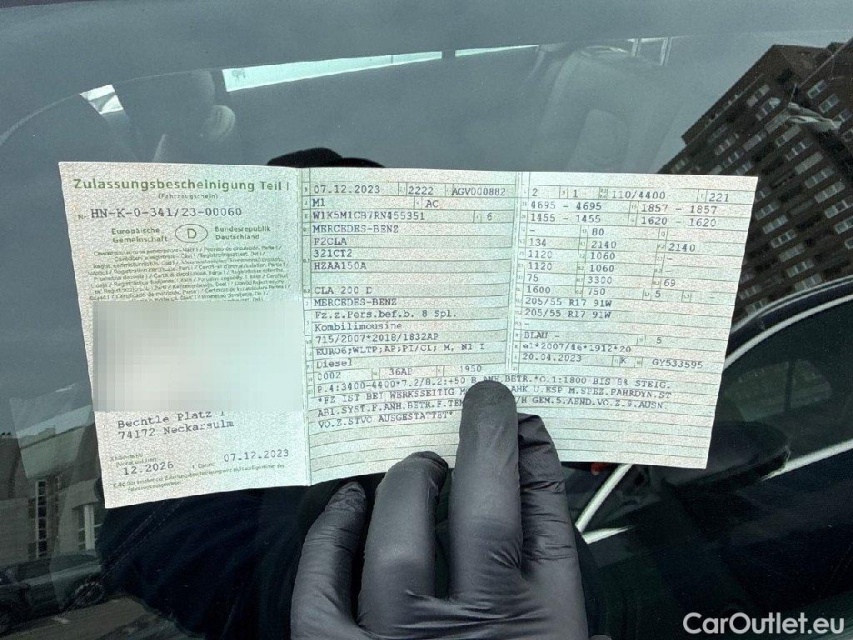 Zulassungsbescheinigung Teil I
(Fahrzeugschein)
Nr. HN-K-0-341/23-00060
Europäische Gemeinschaft
D
Bundesrepublik Deutschland
Bechtle Platz 1
74172 Neckarsulm
12.2026
07.12.2023
07.12.2023 2222 AGV000882
M1 AC
6
MERCEDES-BENZ
F2CLA
321CT2
HZAA150A
CLA 200 D
MERCEDES-BENZ
Fz.z.Pers.bef.b. 8 Spl.
Kombilimousine
715/2007*2018/1832AP
EURO6;WLTP;AP;PI/CI; M, N1 I
Diesel
0002 36AP 1950
2 1 - 110/4400 221
4695 - 4695 1857 - 1857
1455 - 1455 1620 - 1620
- 80
134 2140 2140
1120 1060 -
1120 1060 -
75 3300 69
1600 750 5 -
205/55 R17 91W
205/55 R17 91W
-
BLAU - 5
e1*2007/46*1912*20
20.04.2023 K GY533595
F.4:3400-4400*7.2/8.2:+50 B.ANH.BETR.*O.1:1800 BIS 8% STEIG.
VO.Z.STVO AUSGESTATTET*
CarOutlet.eu